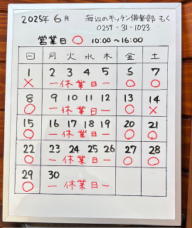 2025年 6月
海辺のキッチン倶楽部 もく
0257-31-1023
営業日 ○ 10:00~16:00
日 月 火 水 木 金 土
1 2 3 4 5 6 7
× ー休業日ー ○ ○
8 9 10 11 12 13 14
○ ー休業日ー ○ ×
15 16 17 18 19 20 21
○ ー休業日ー ○ ○
22 23 24 25 26 27 28
○ ー休業日ー ○ ○
29 30
○ ー休業日ー